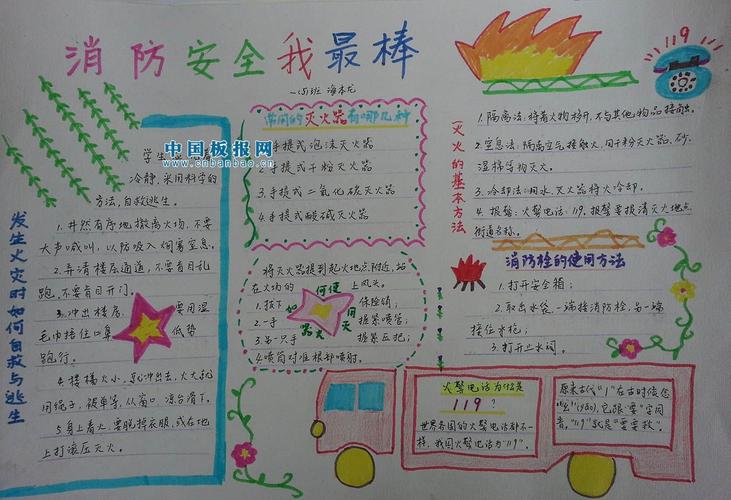 消防安全我最棒
119
中国板报网
www.cnbanbao.cn
发生火灾时如何自救与逃生
冷静,采用科学的
方法,自救逃生。
1.井然有序地撤离火场,不要
大声喊叫,以防吸入烟雾窒息。
2.弄清楼层通道,不要盲目乱
跑,不要盲目开门。
3.冲出楼房 要用湿
毛巾捂住口鼻 低势
跑行。
用绳子,被单等,从窗口、凉台滑下。
5.身上着火,要脱掉衣服,或在地
上打滚压灭火。
常用的灭火器有哪几种
1.手提式泡沫灭火器
2.手提式干粉灭火器
3.手提式二氧化碳灭火器
4.手提式酸碱灭火器
将灭火器提到起火地点附近,站
在火场的 上风头。
1.拔下 保险销;
2.一手 握紧喷管;
3.另一只手 握紧压把;
4.喷筒对准根部喷射。
如何使用灭火器
灭火的基本方法
1.隔离法:将着火物移开,不与其他物品接触。
2.窒息法:隔离空气接触火,用干粉灭火器、砂、
湿棉等物灭火。
3.冷却法:用水、灭火器将火冷却。
4.报警:火警电话:119.报警要报清灭火地点
街道名称。
消防栓的使用方法
1.打开安全箱;
2.取出水袋,一端接消防栓,另一端
接住水枪;
3.打开止水阀。
火警电话为什么是
119?
世界各国的火警电话都不一
样,我国火警电话为“119”。
原来古代“1”在古时候念
同音,“119”就是“要要救”。